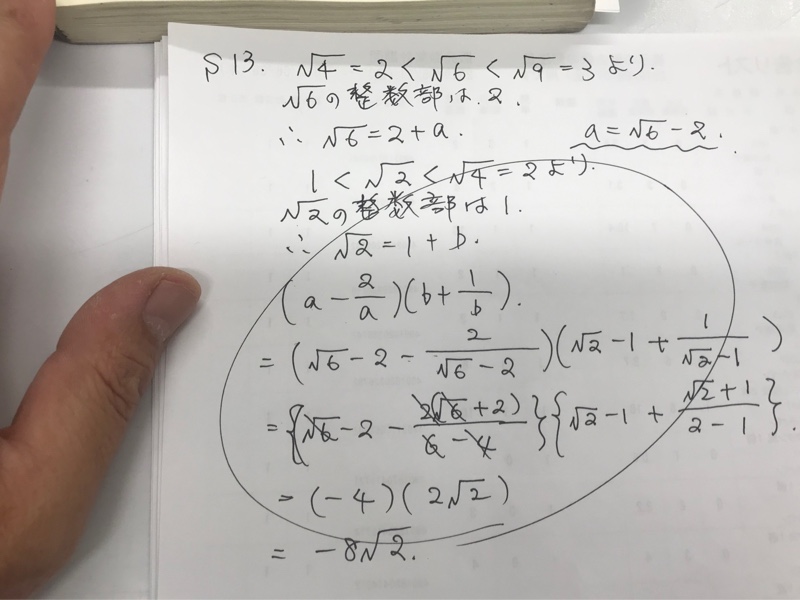 S 13. √4 = 2 < √6 < √9 = 3 より.
√6の整数部は.2.
∴ √6 = 2 + a. a = √6 - 2.
1 < √2 < √4 = 2 より.
√2の整数部は1.
∴ √2 = 1 + b.
(a - 2/a)(b + 1/b).
= (√6 - 2 - 2/(√6 - 2))(√2 - 1 + 1/(√2 - 1))
= {√6 - 2 - 2(√6 + 2)/(6 - 4)}{√2 - 1 + (√2 + 1)/(2 - 1)}.
= (-4)(2√2)
= -8√2.